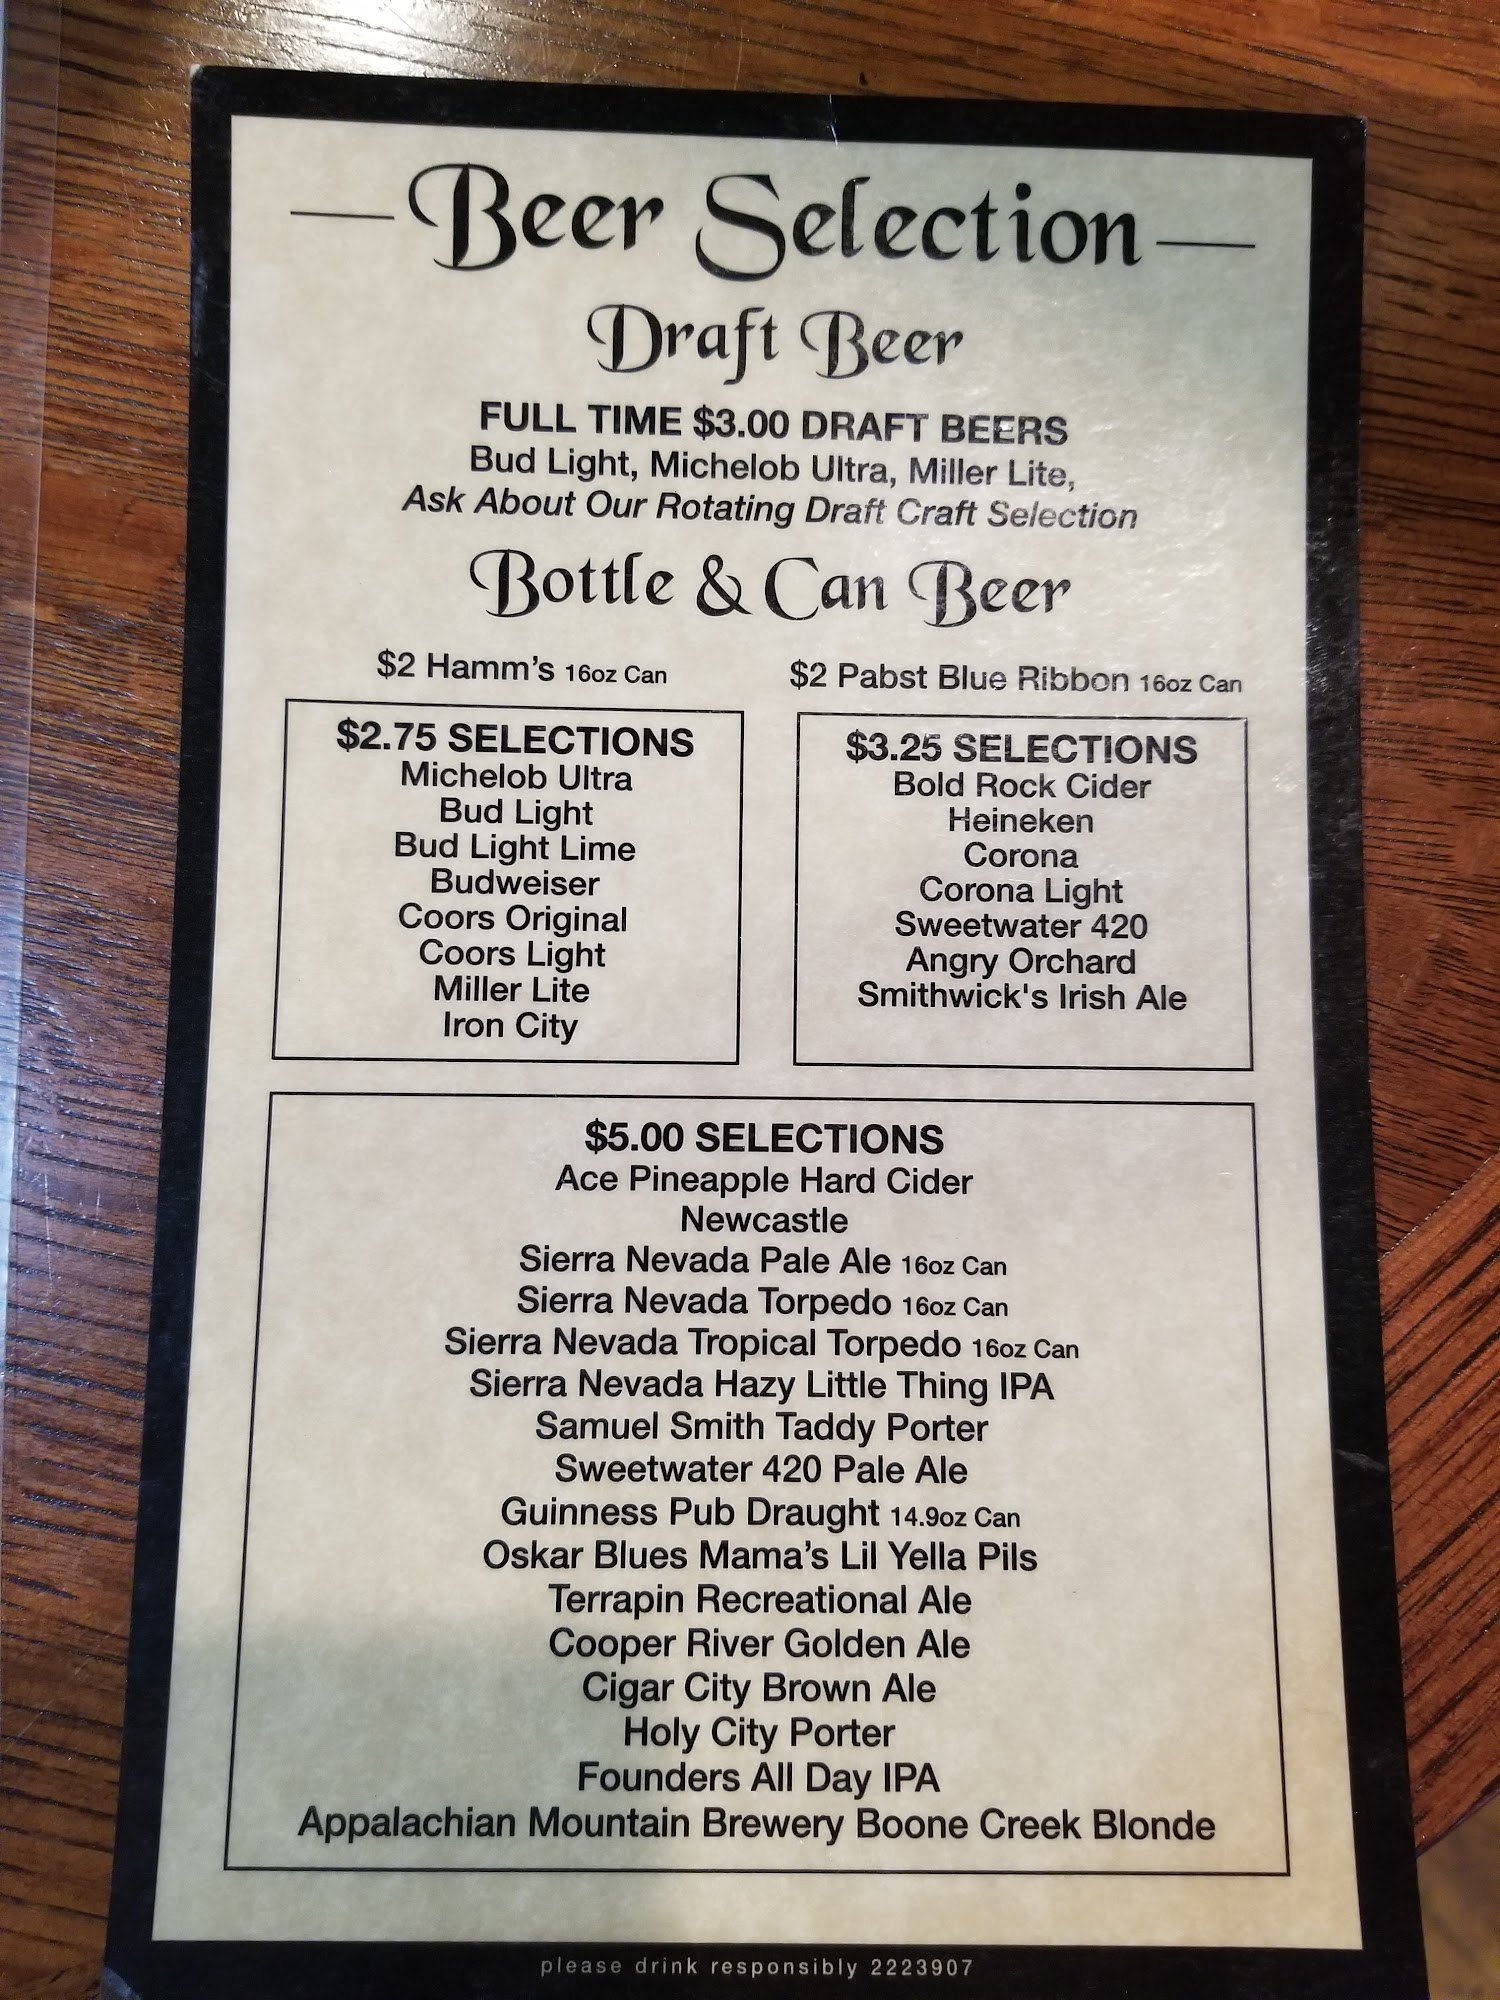 Beer Selection
Draft Beer
FULL TIME $3.00 DRAFT BEERS
Bud Light, Michelob Ultra, Miller Lite,
Ask About Our Rotating Draft Craft Selection
Bottle & Can Beer
$2 Hamm's 16oz Can
$2 Pabst Blue Ribbon 16oz Can
$2.75 SELECTIONS
Michelob Ultra
Bud Light
Bud Light Lime
Budweiser
Coors Original
Coors Light
Miller Lite
Iron City
$3.25 SELECTIONS
Bold Rock Cider
Heineken
Corona
Corona Light
Sweetwater 420
Angry Orchard
Smithwick's Irish Ale
$5.00 SELECTIONS
Ace Pineapple Hard Cider
Newcastle
Sierra Nevada Pale Ale 16oz Can
Sierra Nevada Torpedo 16oz Can
Sierra Nevada Tropical Torpedo 16oz Can
Sierra Nevada Hazy Little Thing IPA
Samuel Smith Taddy Porter
Sweetwater 420 Pale Ale
Guinness Pub Draught 14.9oz Can
Oskar Blues Mama's Lil Yella Pils
Terrapin Recreational Ale
Cooper River Golden Ale
Cigar City Brown Ale
Holy City Porter
Founders All Day IPA
Appalachian Mountain Brewery Boone Creek Blonde
please drink responsibly 2223907